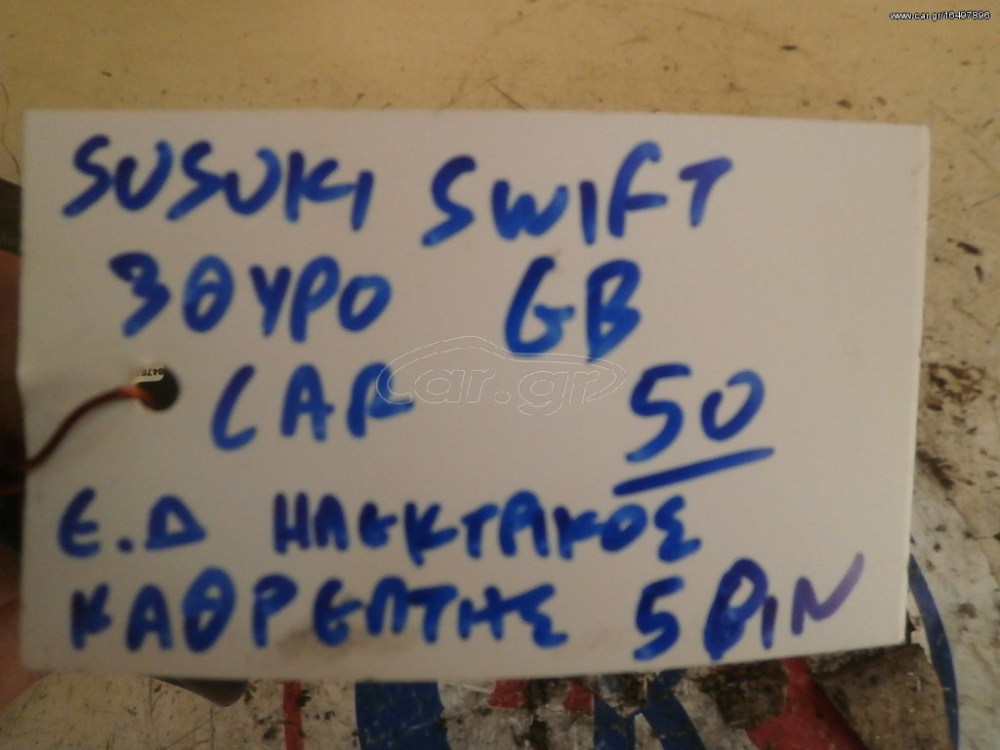 www.car.gr/16497896
SUSUKI SWIFT
3ΘΥΡΟ GB
CAR 50
Ε.Δ ΗΛΕΚΤΡΙΚΟΣ
ΚΑΘΡΕΠΤΗΣ 5 PIN
car.gr